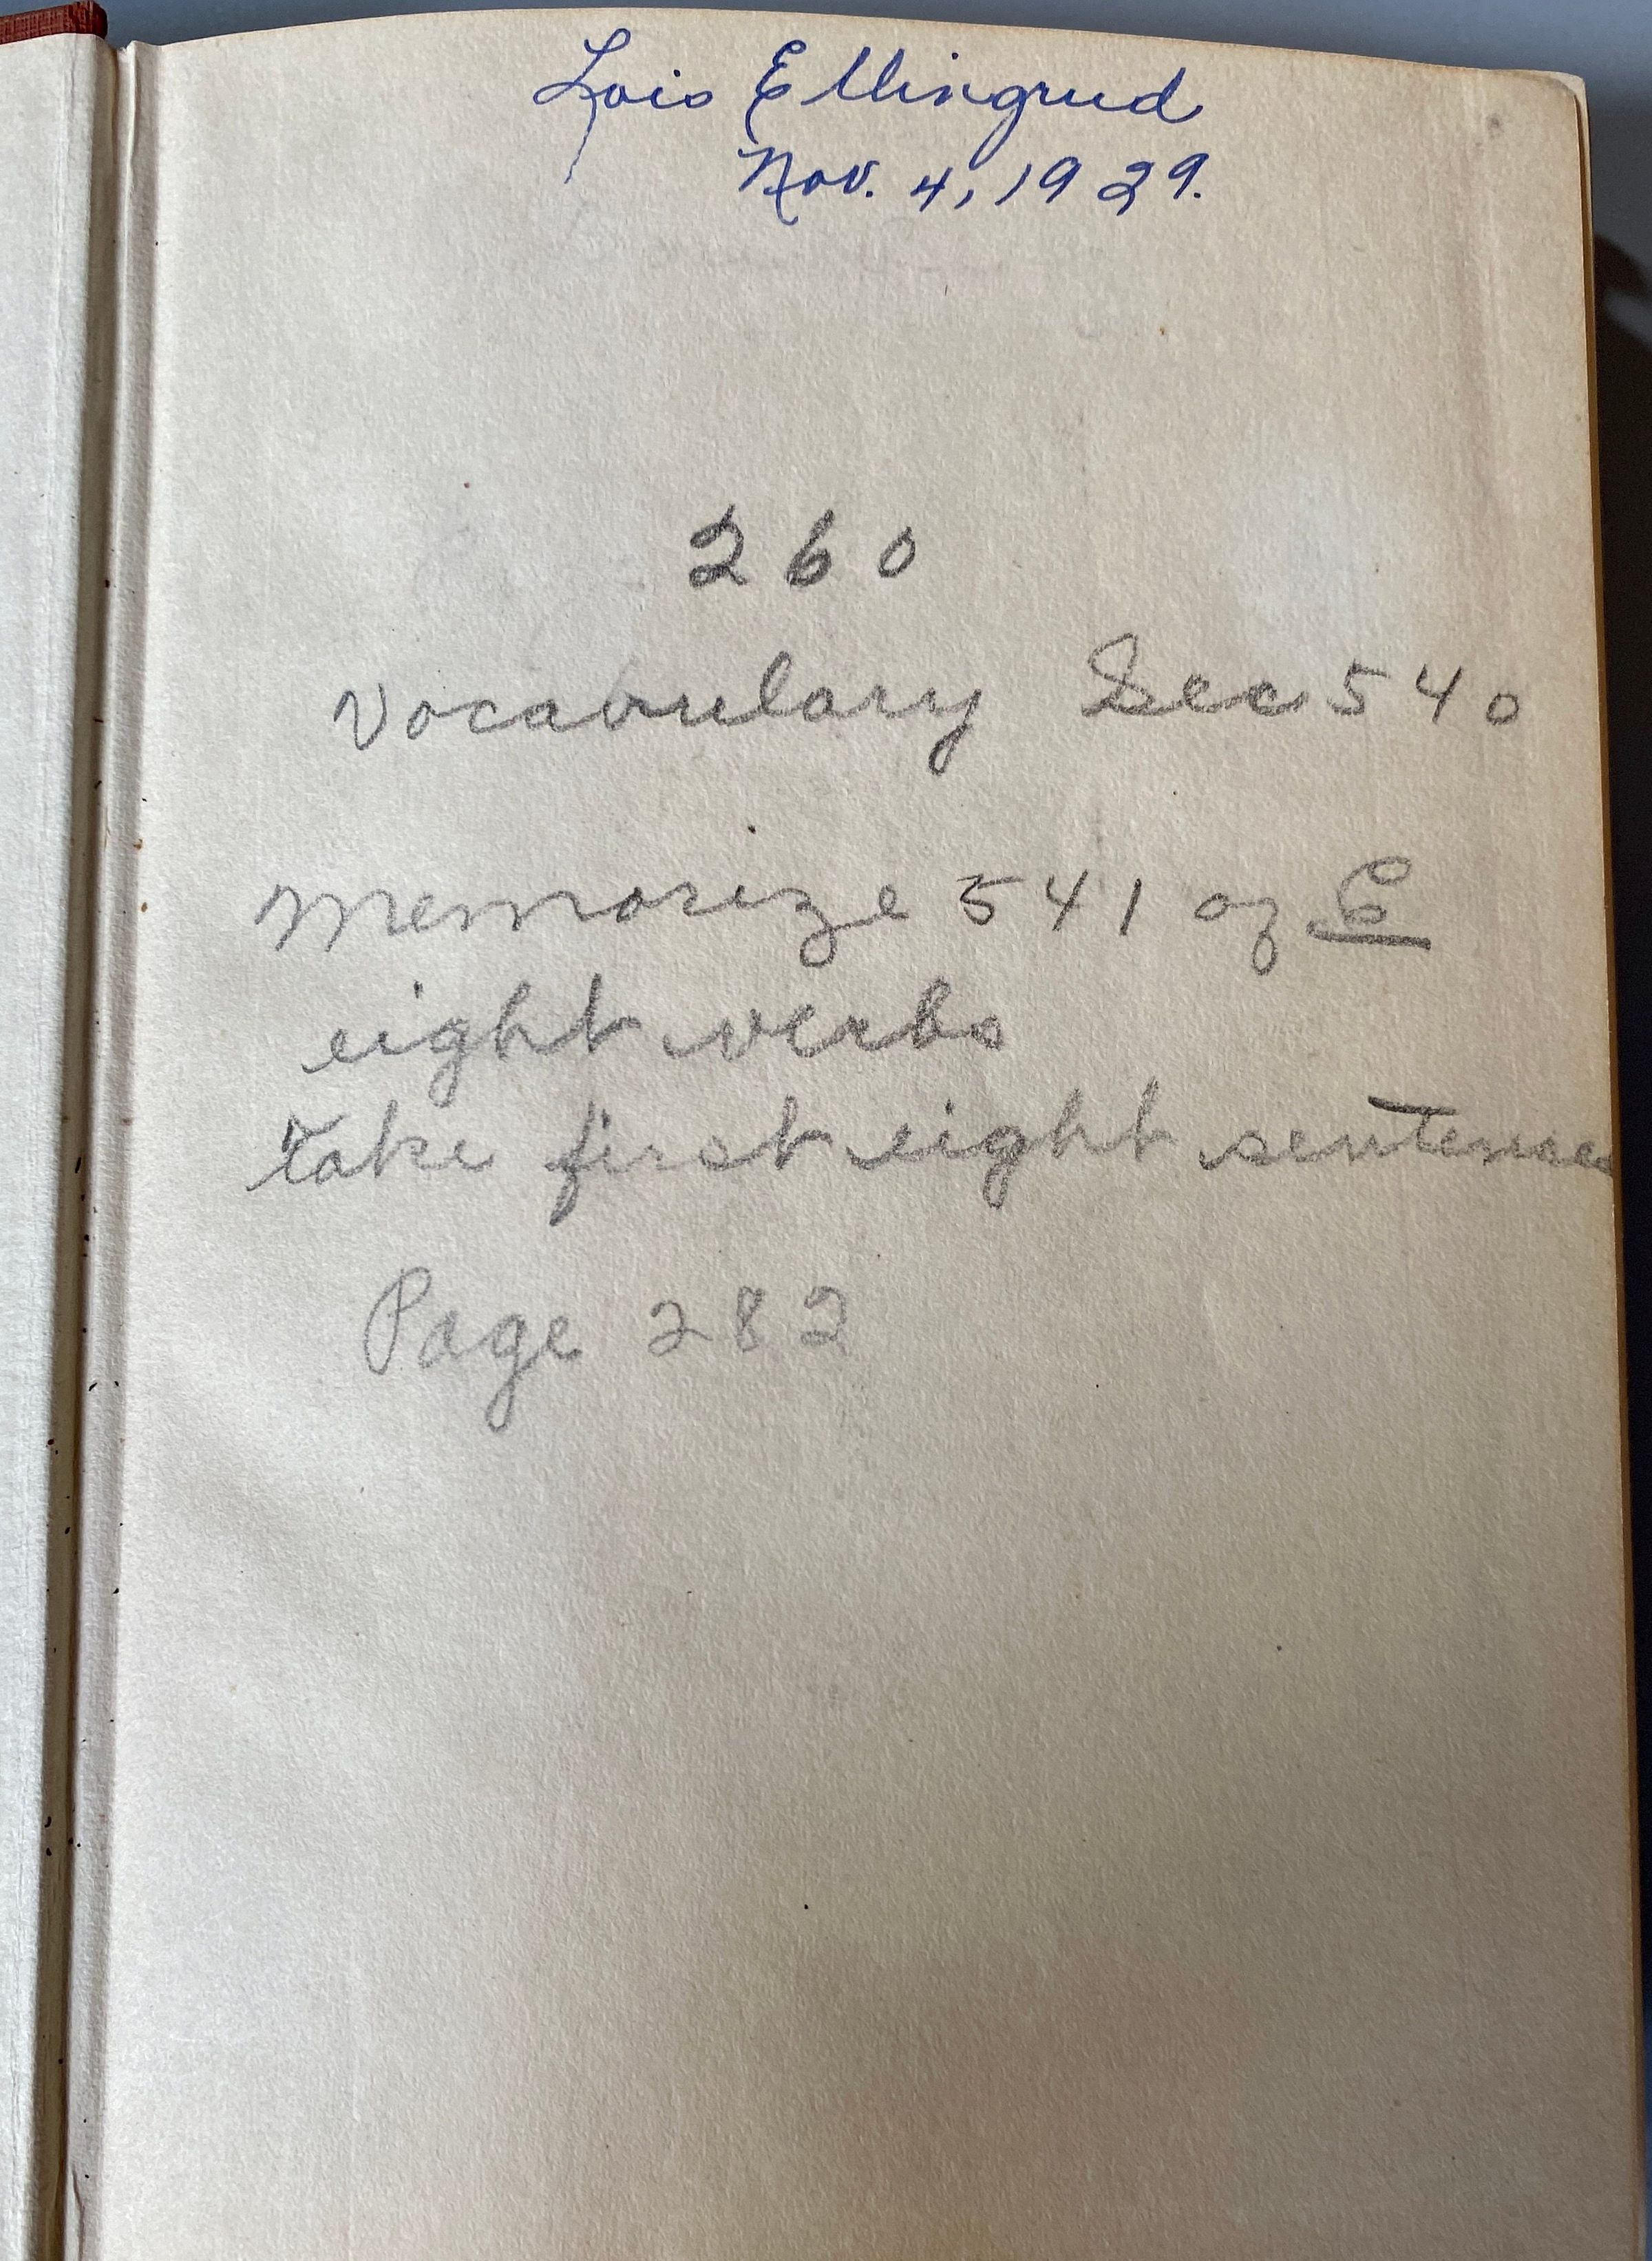 Lois Ellingrud
Nov. 4, 1929.
260
Vocabulary Sec 540
Memorize 541 of C
eight verbs
take first eight sentences
Page 282